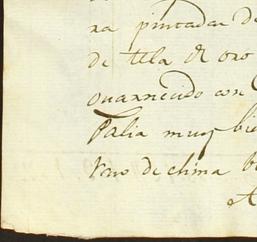 na pintadas de
de tela de oro
Guarnecido con
Palia muy bie
Vno de china b